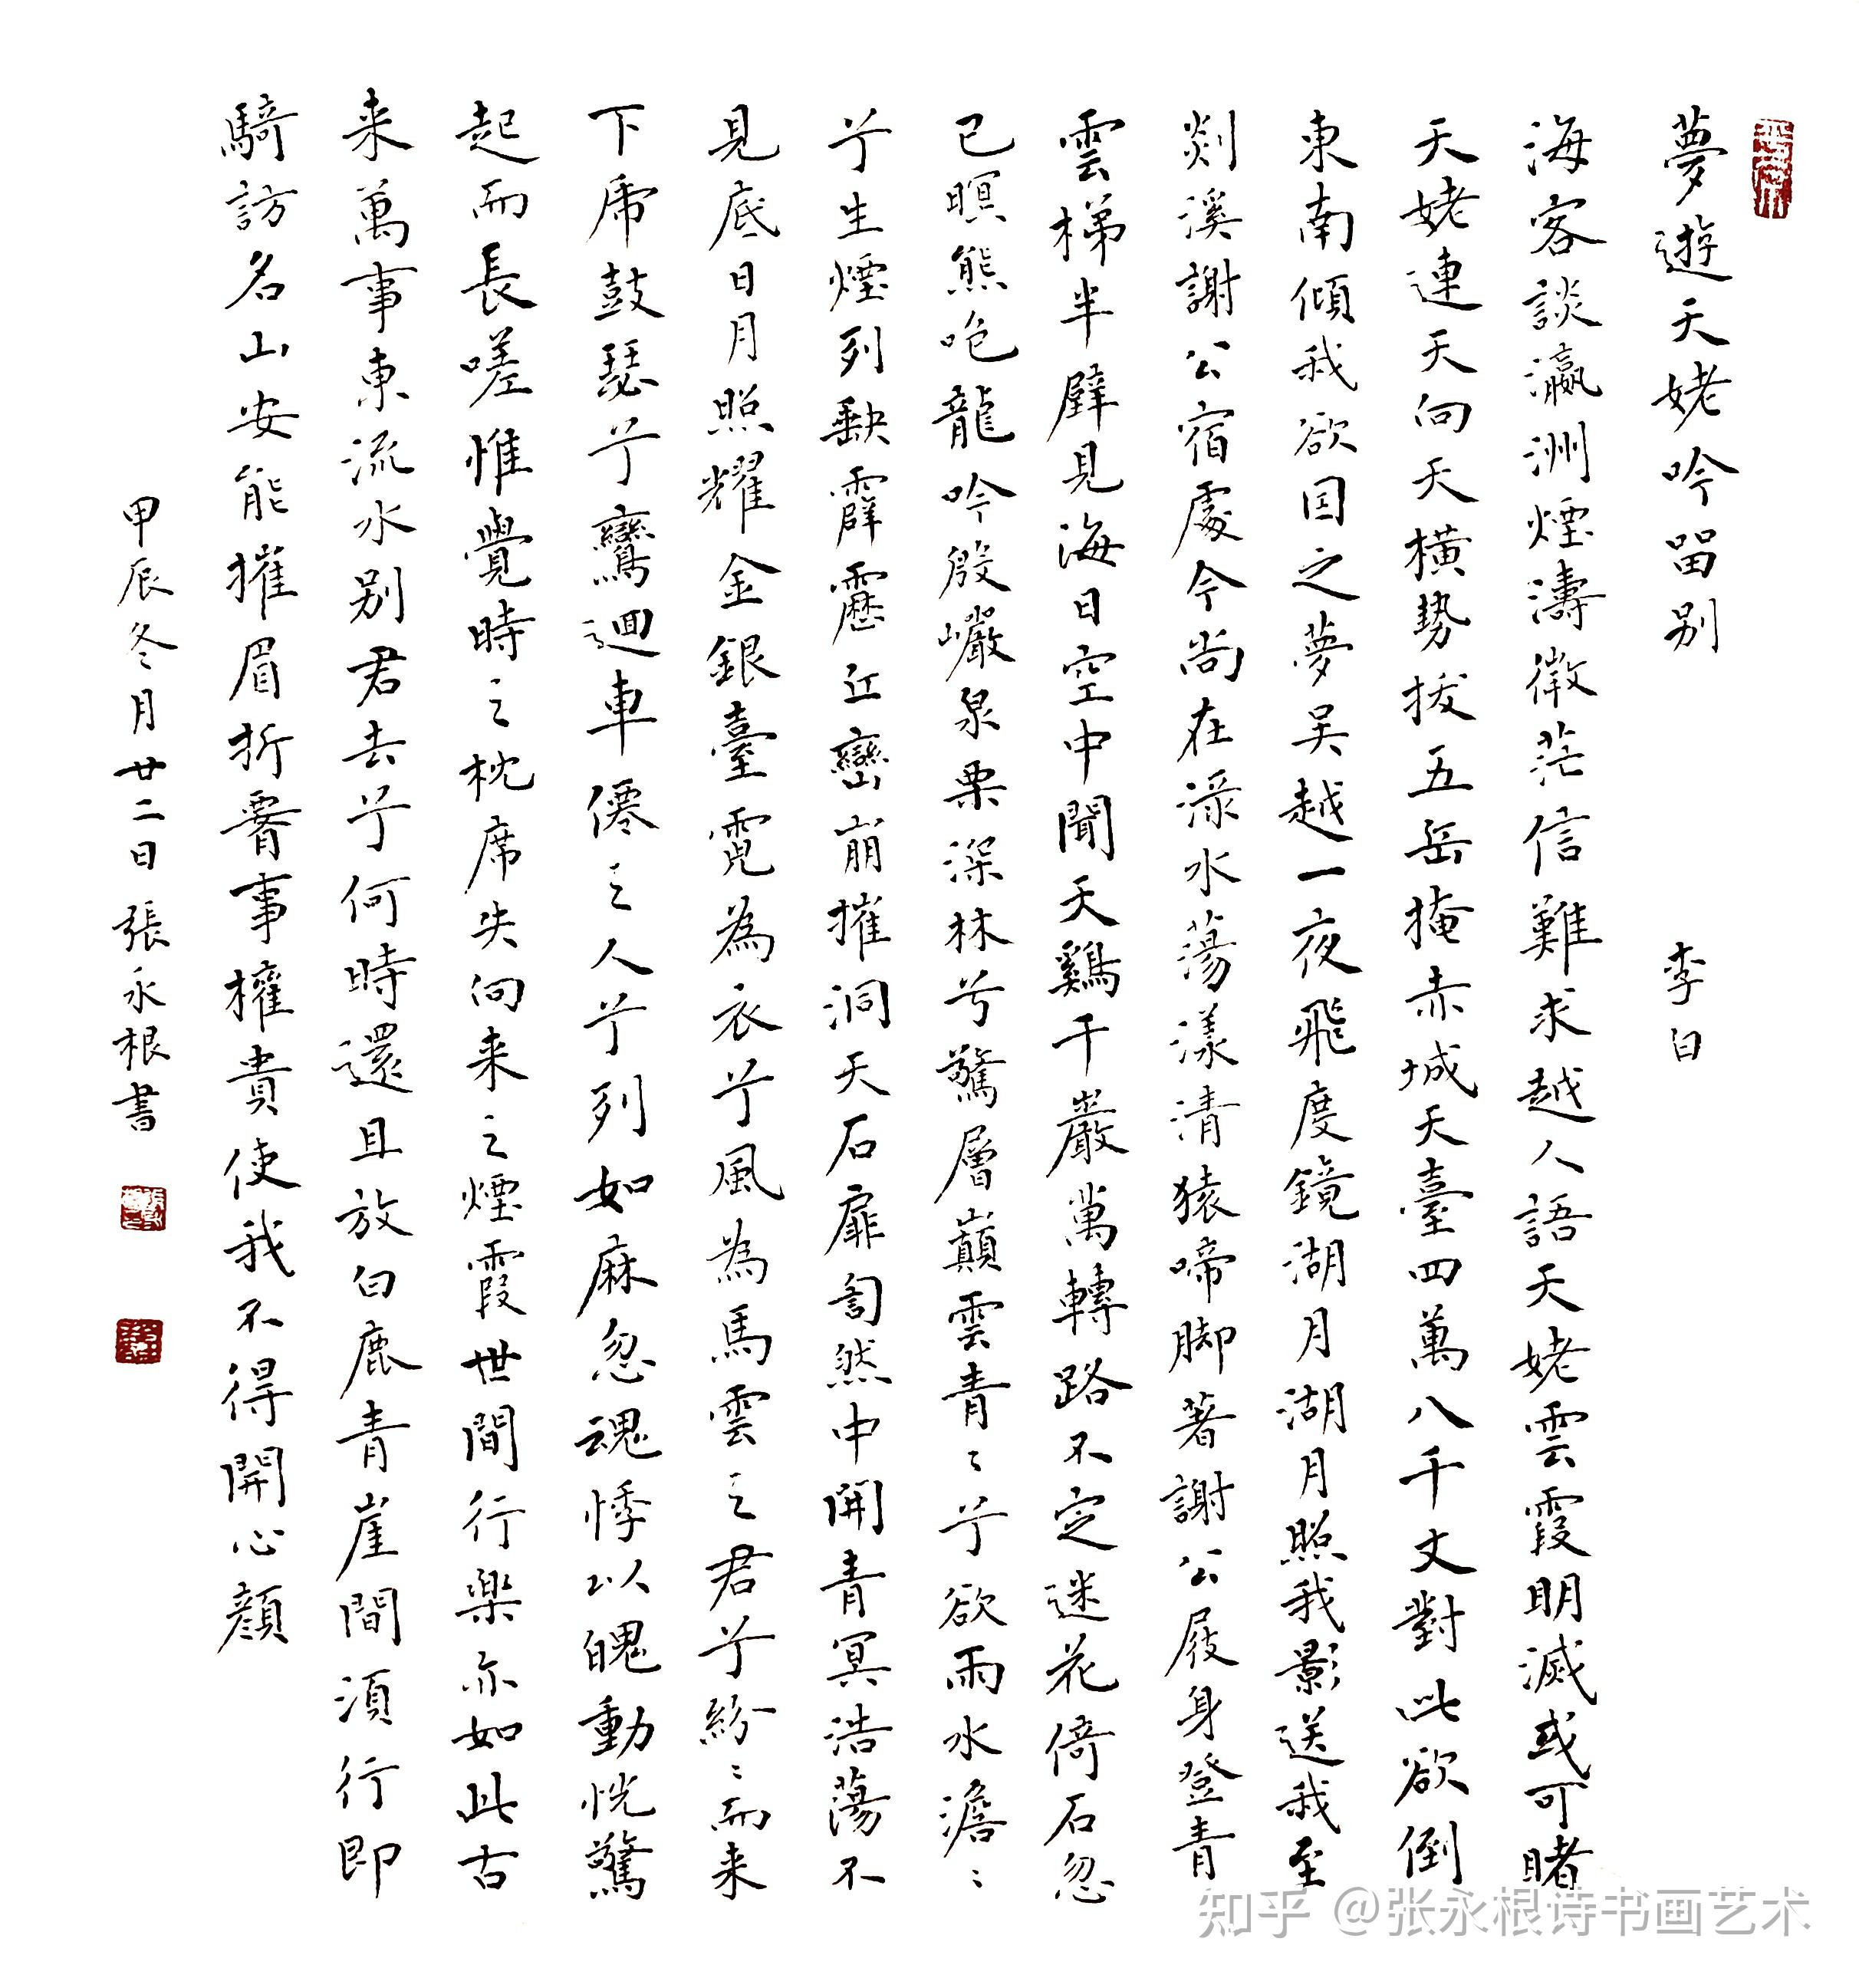 夢遊天姥吟留别 李白
海客談瀛洲煙濤微茫信難求越人語天姥雲霞明滅或可睹
天姥連天向天橫勢拔五岳掩赤城天臺四萬八千丈對此欲倒
東南傾我欲因之夢吴越一夜飛度鏡湖月湖月照我影送我至
剡溪謝公宿處今尚在渌水蕩漾清猿啼脚著謝公屐身登青
雲梯半壁見海日空中聞天鷄千巖萬轉路不定迷花倚石忽
已暝熊咆龍吟殷巖泉栗深林兮驚層巔雲青〻兮欲雨水澹〻
兮生煙列缺霹靂丘巒崩摧洞天石扉訇然中開青冥浩蕩不
見底日月照耀金銀臺霓為衣兮風為馬雲之君兮紛〻而来
下虎鼓瑟兮鸞迴車僊之人兮列如麻忽魂悸以魄動恍驚
起而長嗟惟覺時之枕席失向来之煙霞世間行樂亦如此古
来萬事東流水别君去兮何時還且放白鹿青崖間須行即
騎訪名山安能摧眉折腰事權貴使我不得開心顔
甲辰冬月廿二日張永根書
知乎 @张永根诗书画艺术